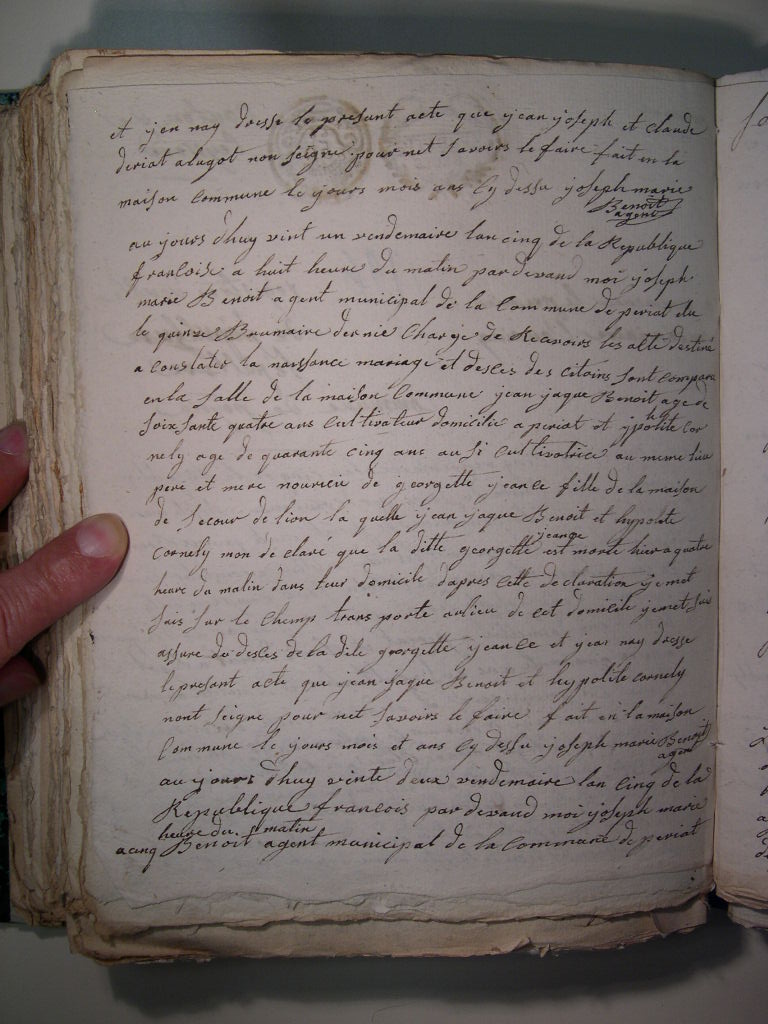 et jen nay dresse le presant acte que jean joseph et claude
deriat alugot non seigne pour net savoirs le faire fait en la
maison commune le jours mois ans cy dessu joseph marie
Benoit
agent
au jours dhuy vint un vendemaire lan cinq de la Republique
francoise a huit heure du matin par devand moi joseph
marie Benoit agent municipal de la Commune de periat elu
le quinze Brumaire dernie Charge de Recevoirs les alte destiné
a constater la naissance mariage et desces des citoins sont compara
en la salle de la maison Commune jean jaque Benoit age de
soixsante quatre ans cultivateur domicilie a periat et ypolite cor
nely age de quarante cinq ans ausi cultivatrice au meme lieu
pere et mere nouricie de georgette jeance fille de la maison
de secour de lion la quelle jean jaque Benoit et hypolite
cornely mon de claré que la ditte georgette jeance est morte hier a quatre
heure du matin dans leur domicile dapres cette de claration je met
suis sur le champ trans porte aulieu de cet domicile je met suis
assure du desces de la dite georgette jeance et jean nay dresse
le presant acte que jean jaque Benoit et hypolite cornely
nont seigne pour net savoirs le faire fait en la maison
Commune le jours mois et ans cy dessu joseph marie Benoit
agent
au jours dhuy vinte deux vendemaire lan cinq de la
Republique francois par devand moi joseph marie
heure du matin
a cinq Benoit agent municipal de la Commune de periat